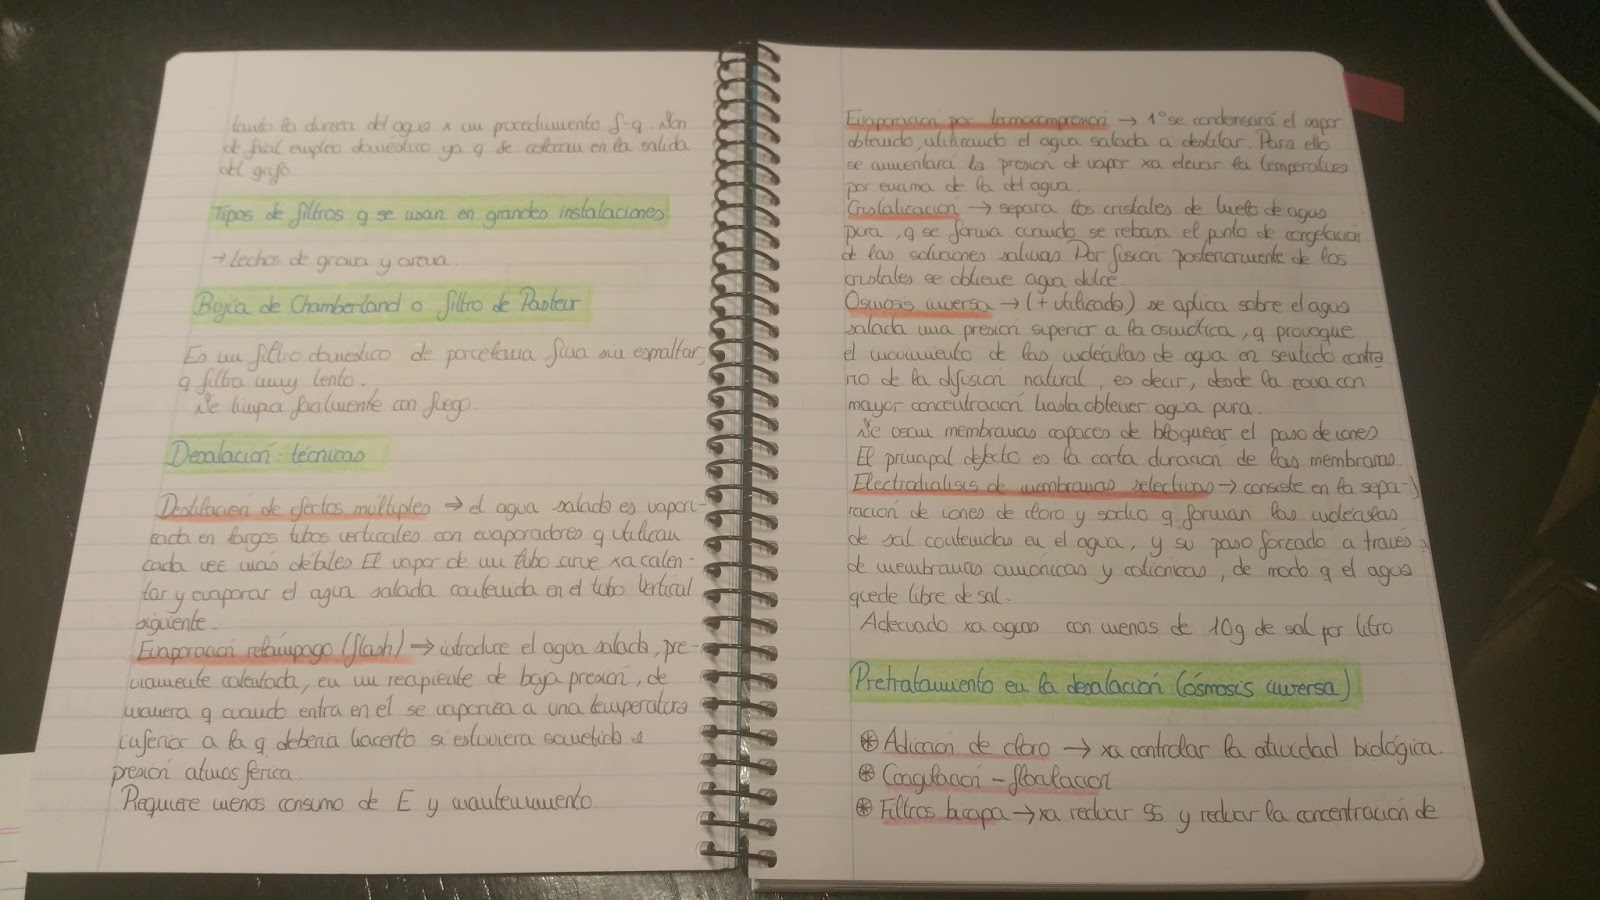 tando la dureza del agua x un procedimiento f-q. Son
de fácil empleo doméstico ya q se colocan en la salida
del grifo.
Tipos de filtros q se usan en grandes instalaciones
→ Lechos de grava y arena.
Bujía de Chamberland o filtro de Pasteur
Es un filtro doméstico de porcelana fina sin esmaltar,
q filtra muy lento.
Se limpia fácilmente con fuego.
Desalación: técnicas
Destilación de efectos múltiples → el agua salada es vapori-
zada en largos tubos verticales con evaporadores q utilizan
cada vez más débiles. El vapor de un tubo sirve xa calen-
tar y evaporar el agua salada contenida en el tubo vertical
siguiente.
Evaporación relámpago (flash) → introduce el agua salada, pre-
viamente calentada, en un recipiente de baja presión, de
manera q cuando entra en él se vaporiza a una temperatura
inferior a la q debería hacerlo si estuviera sometida a
presión atmosférica.
Requiere menos consumo de E y mantenimiento
Evaporación por termocompresión → 1º se condensará el vapor
obtenido, utilizando el agua salada a destilar. Para ello
se aumentará la presión de vapor xa elevar la temperatura
por encima de la del agua.
Cristalización → separa los cristales de hielo de agua
pura, q se forma cuando se rebasa el punto de congelación
de las soluciones salinas. Por fusión posteriormente de los
cristales se obtiene agua dulce.
Osmosis inversa → (+ utilizado) se aplica sobre el agua
salada una presión superior a la osmótica, q provoque
el movimiento de las moléculas de agua en sentido contra
rio de la difusión natural, es decir, desde la zona con
mayor concentración hasta obtener agua pura.
Se usan membranas capaces de bloquear el paso de iones.
El principal defecto es la corta duración de las membranas.
Electrodialisis de membranas selectivas → consiste en la sepa-
ración de iones de cloro y sodio q forman las moléculas
de sal contenidas en el agua, y su paso forzado a través
de membranas aniónicas y catiónicas, de modo q el agua
quede libre de sal.
Adecuado xa aguas con menos de 10g de sal por litro
Pretratamiento en la desalación (ósmosis inversa)
⊛ Adicción de cloro → xa controlar la atividad biológica.
⊛ Coagulación - floculación
⊛ Filtros bicapa → xa reducir SS y reducir la concentración de